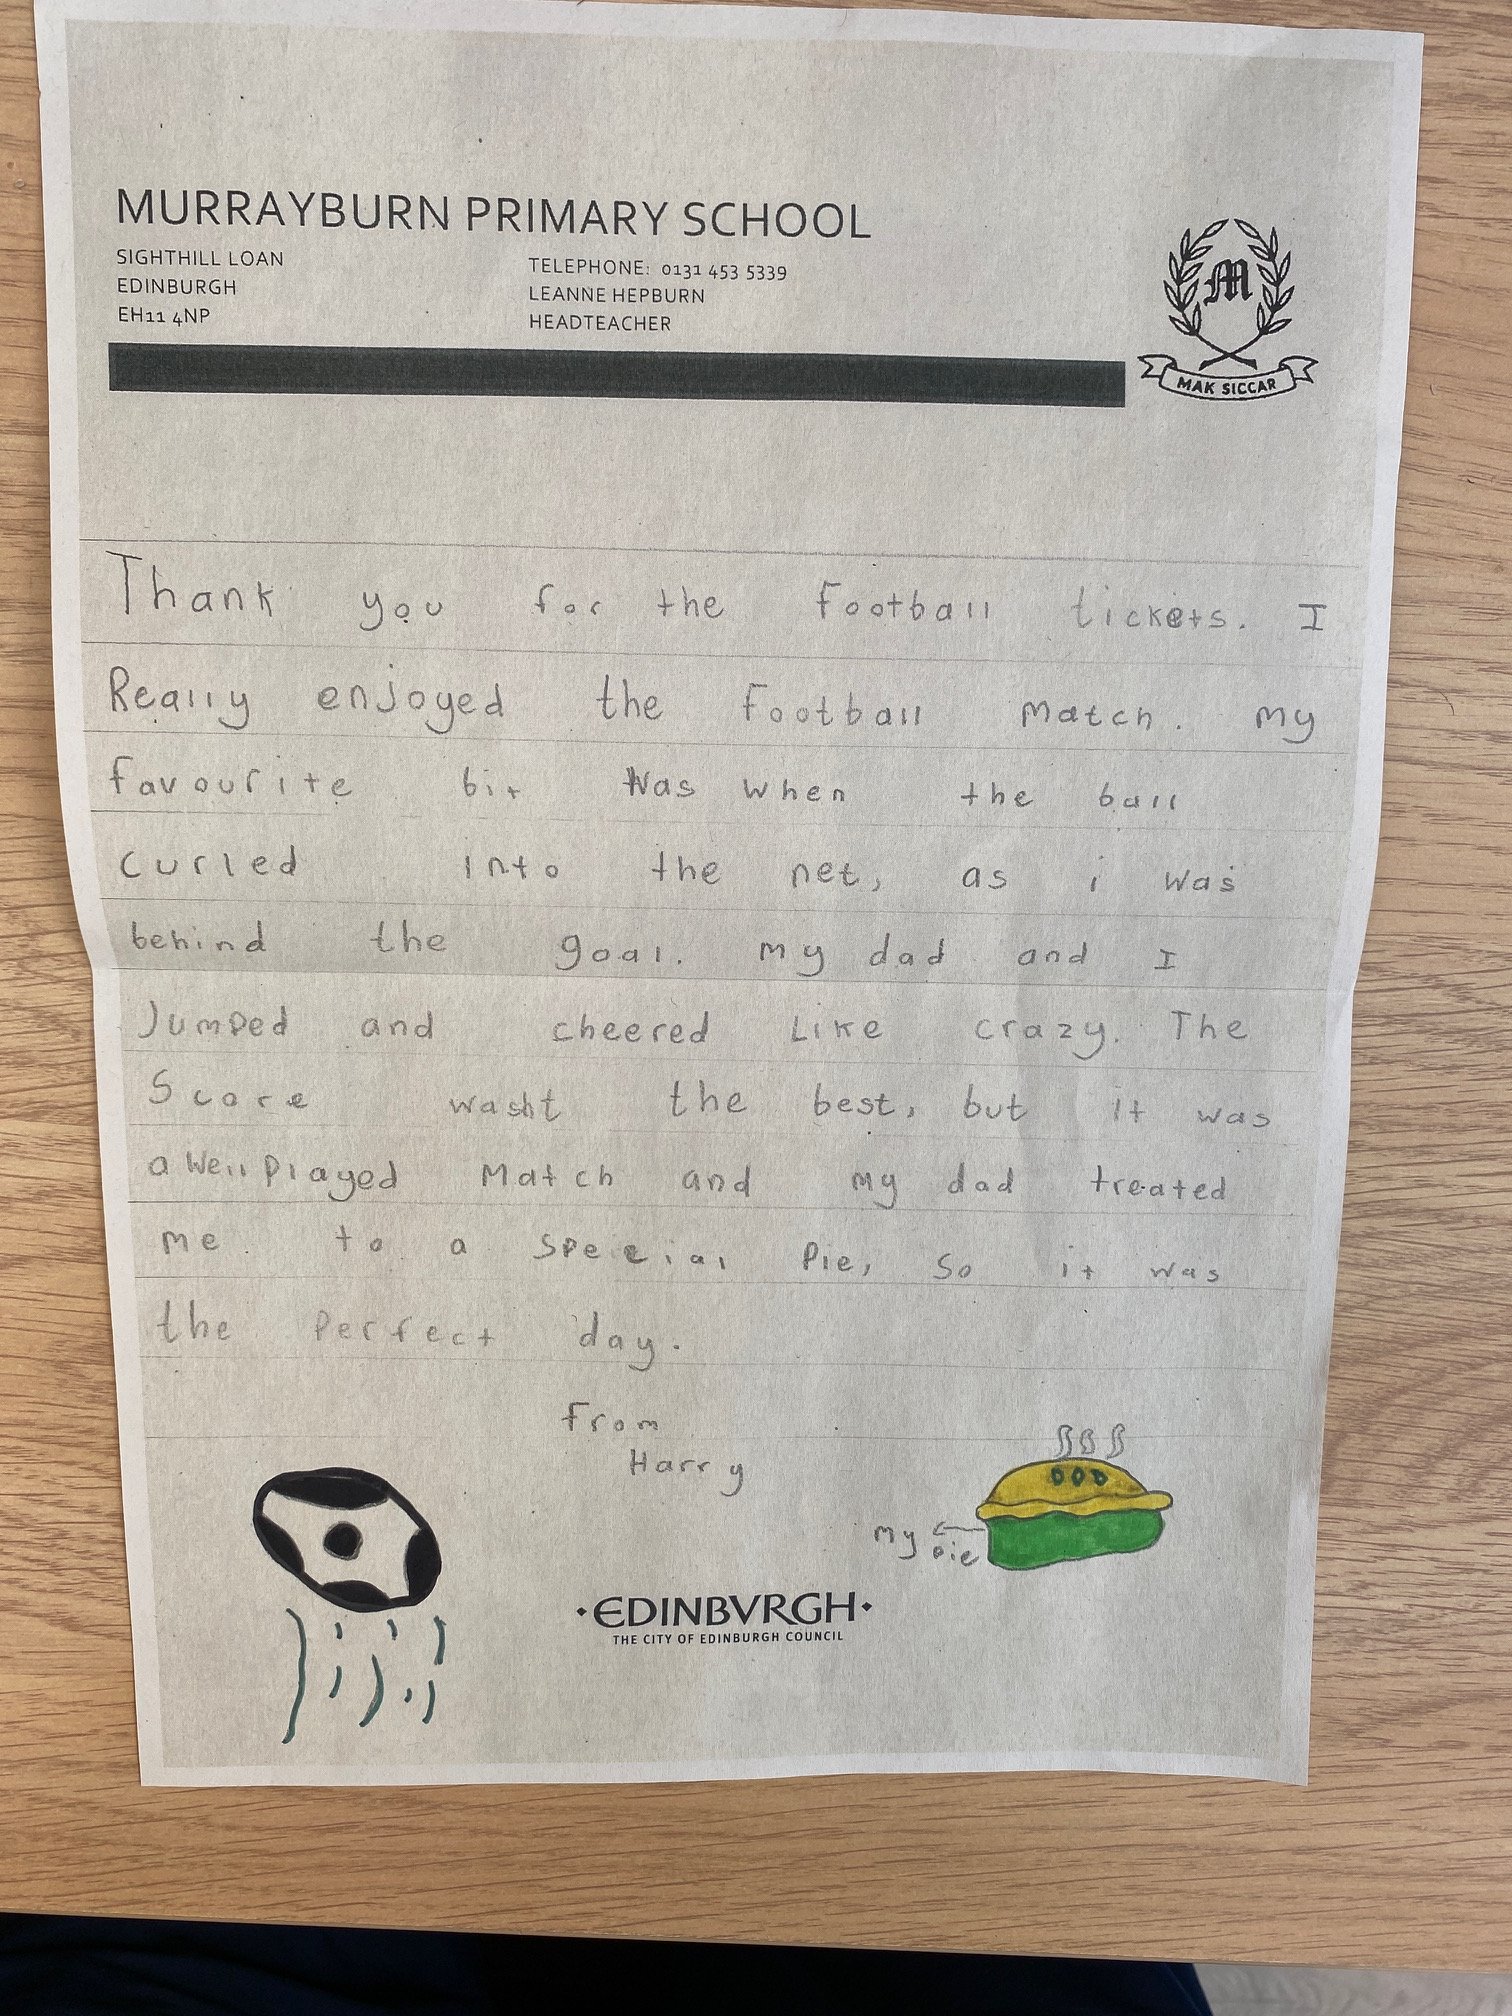 MURRAYBURN PRIMARY SCHOOL
SIGHTHILL LOAN
EDINBURGH
EH11 4NP
TELEPHONE: 0131 453 5339
LEANNE HEPBURN
HEADTEACHER
M
MAK SICCAR
Thank you for the Football tickets. I
Really enjoyed the Football match. my
favourite bit was when the ball
curled into the net, as i was
behind the goal. my dad and I
Jumped and cheered Like crazy. The
Score wasnt the best, but it was
a well played match and my dad treated
me to a special Pie, so it was
the perfect day.
from
Harry
my pie
EDINBVRGH
THE CITY OF EDINBURGH COUNCIL